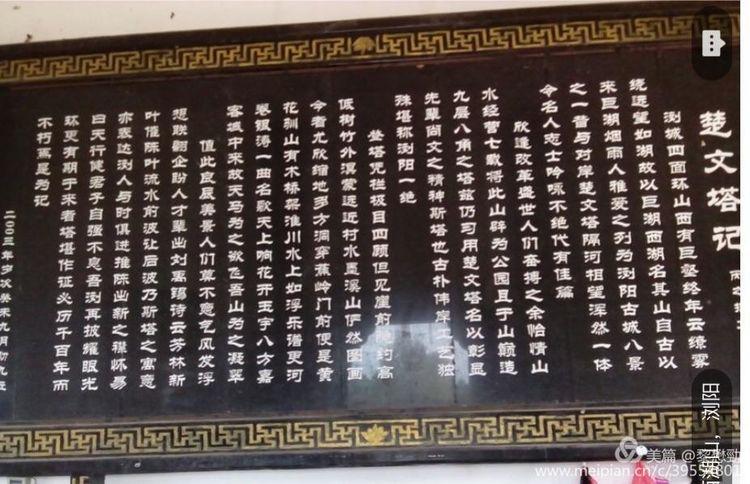 楚文塔记
浏城四面环山西有巨壑终年云缭雾
绕远望如湖故以巨湖西湖名其山自古以
来巨湖烟雨人雅爱之列为浏阳古城八景
之一昔与对岸楚文塔隔河相望浑然一体
令名人志士吟咏不绝代有佳篇
欣逢改革盛世人们奋搏之余怡情山
水经营七载将此山辟为公园且于山巅造
九层八角之塔兹仍习用楚文塔名以彰显
先辈尚文之精神斯塔也古朴伟岸工艺独
殊堪称浏阳一绝
登塔凭栏极目四顾但见崖前隐约高
低树竹外溟蒙远近村水墨溪山俨然图画
今者尤欣缩地多方洞穿蕉岭门前便是黄
花驯山有术桥架淮川水上如浮乐谱更河
卷银涛一曲名歌天上响花开玉宇八方嘉
客域中来故天马为之欲飞吾山为之凝翠
值此良辰美景人们莫不意气风发浮
想联翩企盼人才辈出刘禹锡诗云芳林新
叶催陈叶流水前波让后波乃斯塔之寓意
亦表达浏人与时俱进推陈出新之襟怀易
曰天行健君子自强不息吾浏再披耀眼光
环更有期于来者塔堪作证必历千百年而
不朽焉是为记
二〇〇三年岁次癸未九月初九立
浏阳
美篇 @黎懋勁
www.meipian.cn/c/39554801